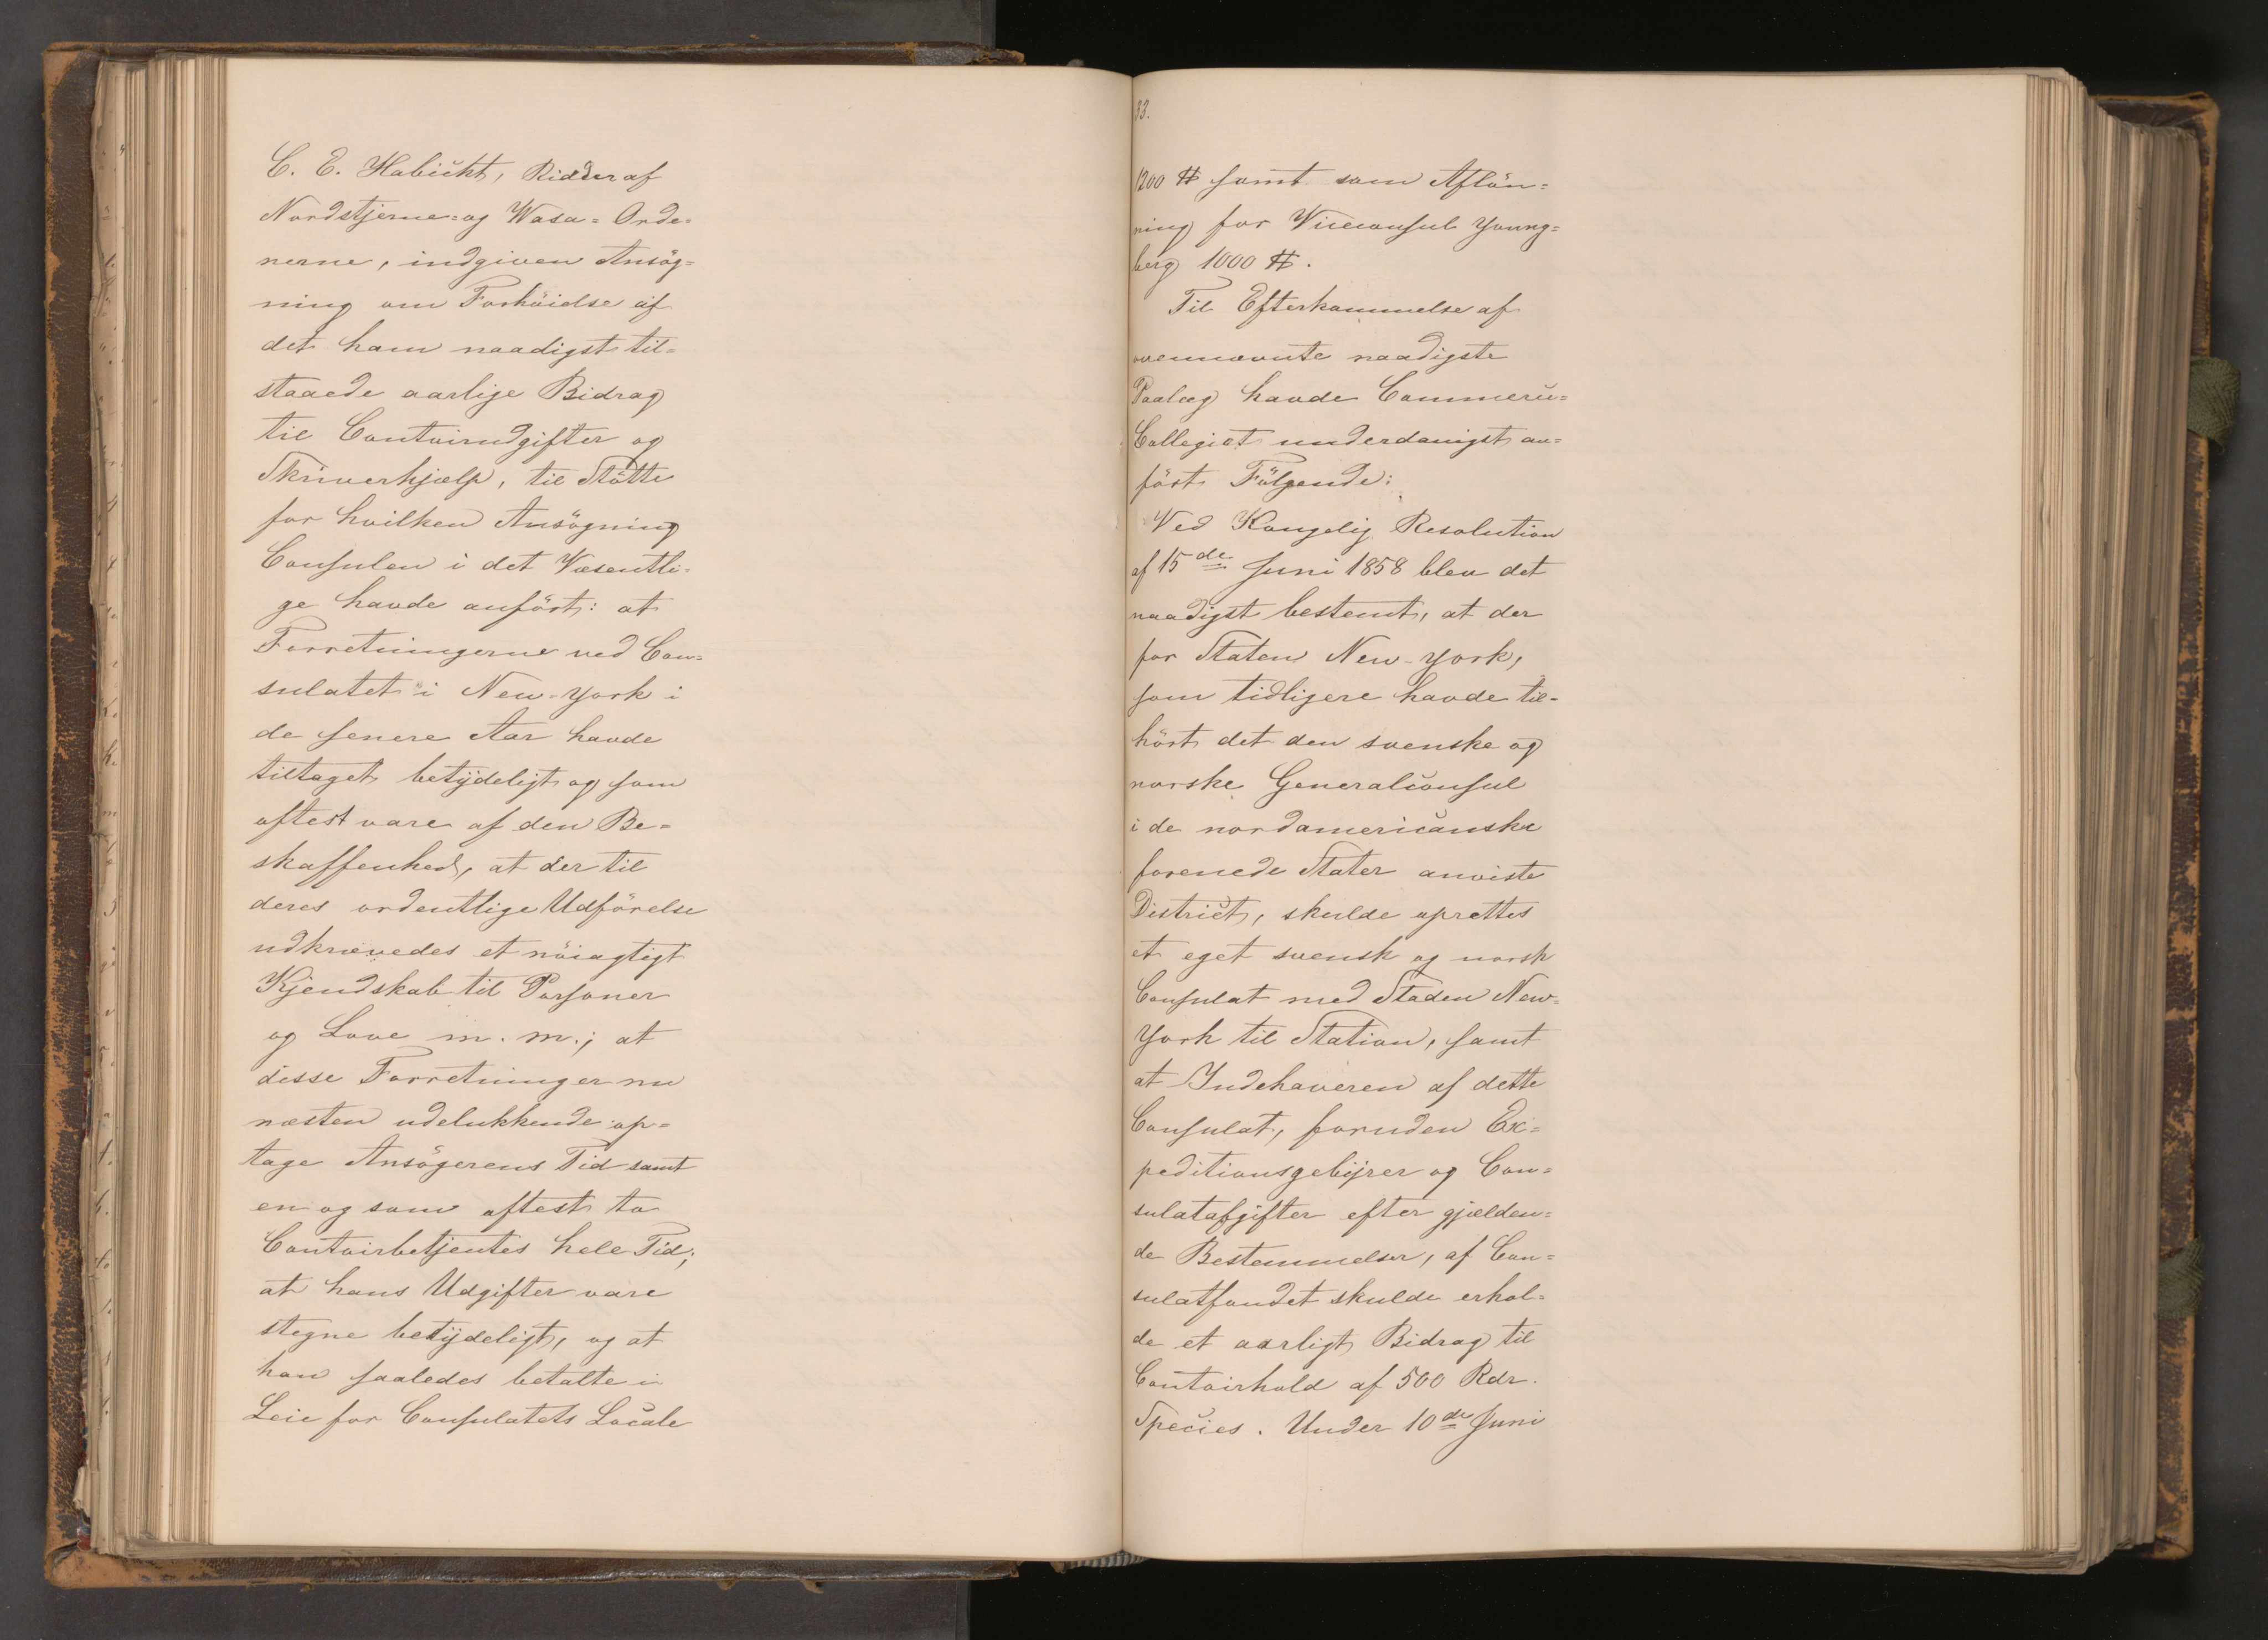 C. E. Habicht, Ridder af
Nordstjerne- og Wasa-Orde-
nerne, indgiven Ansög-
ning om Forhöidelse af
det ham naadigst til-
staaede aarlige Bidrag
til Contoirudgifter og
Skriverhjælp, til Stötte
for hvilken Ansögning
Consulen i det Væsentli-
ge havde anfört: at
Forretningerne ved Con-
sulatet i New-York i
de senere Aar havde
tiltaget betydeligt og som
oftest vare af den Be-
skaffenhed, at der til
deres ordentlige Udförelse
udkrævedes et nöiagtigt
Kjendskab til Personer
og Love m. m.; at
disse Forretninger nu
næsten udelukkende op-
tage Ansögerens Tid samt
en og som oftest to
Contoirbetjentes hele Tid;
at hans Udgifter vare
stegne betydeligt, og at
han saaledes betalte i
Leie for Consulatets Locale
33.
1200 $ samt som Aflön-
ning for Viceconsul Young-
berg 1000 $.
Til Efterkommelse af
ovennævnte naadigste
Paalæg havde Commerce-
Collegiet underdanigst an-
fört Fölgende:
Ved Kongelig Resolution
af 15de Juni 1858 blev det
naadigst bestemt, at der
for Staten New-York,
som tidligere havde til-
hört det den svenske og
norske Generalconsul
i de nordamericanske
forenede Stater anviste
District, skulde oprettes
et eget svensk og norsk
Consulat med Staden New-
York til Station, samt
at Indehaveren af dette
Consulat, foruden Ex-
peditionsgebyrer og Con-
sulatafgifter efter gjælden-
de Bestemmelser, af Con-
sulatfondet skulde erhol-
de et aarligt Bidrag til
Contoirhold af 500 Rdr.
Species. Under 10de Juni